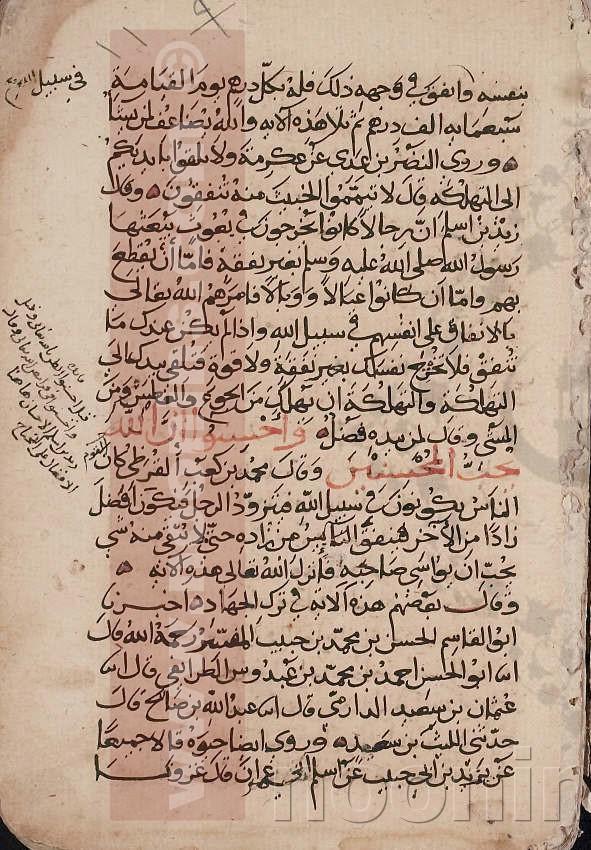 بنفسه وانفق في وجهه ذلك فله بكل درهم يوم القيامة
سبعمايه الف درهم ثم تلا هذه الآيه والله يضاعف لمن يشا
وروى النضر بن عدي عن عكرمة ولا تلقوا بايديكم
الى التهلكة قال لا تيمموا الخبيث منه تنفقون وقال
زيد بن اسلم ان رجالا كانوا يخرجون في بعوث يبعثها
رسول الله صلى الله عليه وسلم بغير نفقة فامّا أن يقطع
بهم وامّا ان كانوا عيالا ووبالا فامرهم الله تعالى
بالانفاق على انفسهم في سبيل الله واذا لم يكن عندك ما
تنفق فلا تخرج بنفسك بغير نفقة ولا قوة فتلقي بيدك الى
التهلكة والتهلكة ان يهلك من الجوع والعطش ومن
المشي وقال لمن بيده فضل واحسنوا ان الله
يحبّ المُحْسنين وقال محمد بن كعب القرظي كان
الناس يكونون في سبيل الله فيتزوّد الرجل فيكون افضل
زادًا من الآخر فينفق البايس من زاده حتى لا يبقى منه شي
يحبّ ان يواسي صاحبه فانزل الله تعالى هذه الآية
وقال بعضهم هذه الآية في ترك الجهاد اخبرنا
ابو القاسم الحسن بن محمّد بن حبيب المفسّر رحمة الله قال
انا ابو الحسن احمد بن محمّد بن عبدوس الطرايفي قال انا
عثمان بن سعيد الدارميّ قال انا عبد الله بن صالح قال
حدّثني الليث بن سعيد وروى ايضا حيوة قالا جميعا
عن يزيد بن ابي حبيب عن اسلم ابي عمران قال غزونا
في سبيل
noorlib